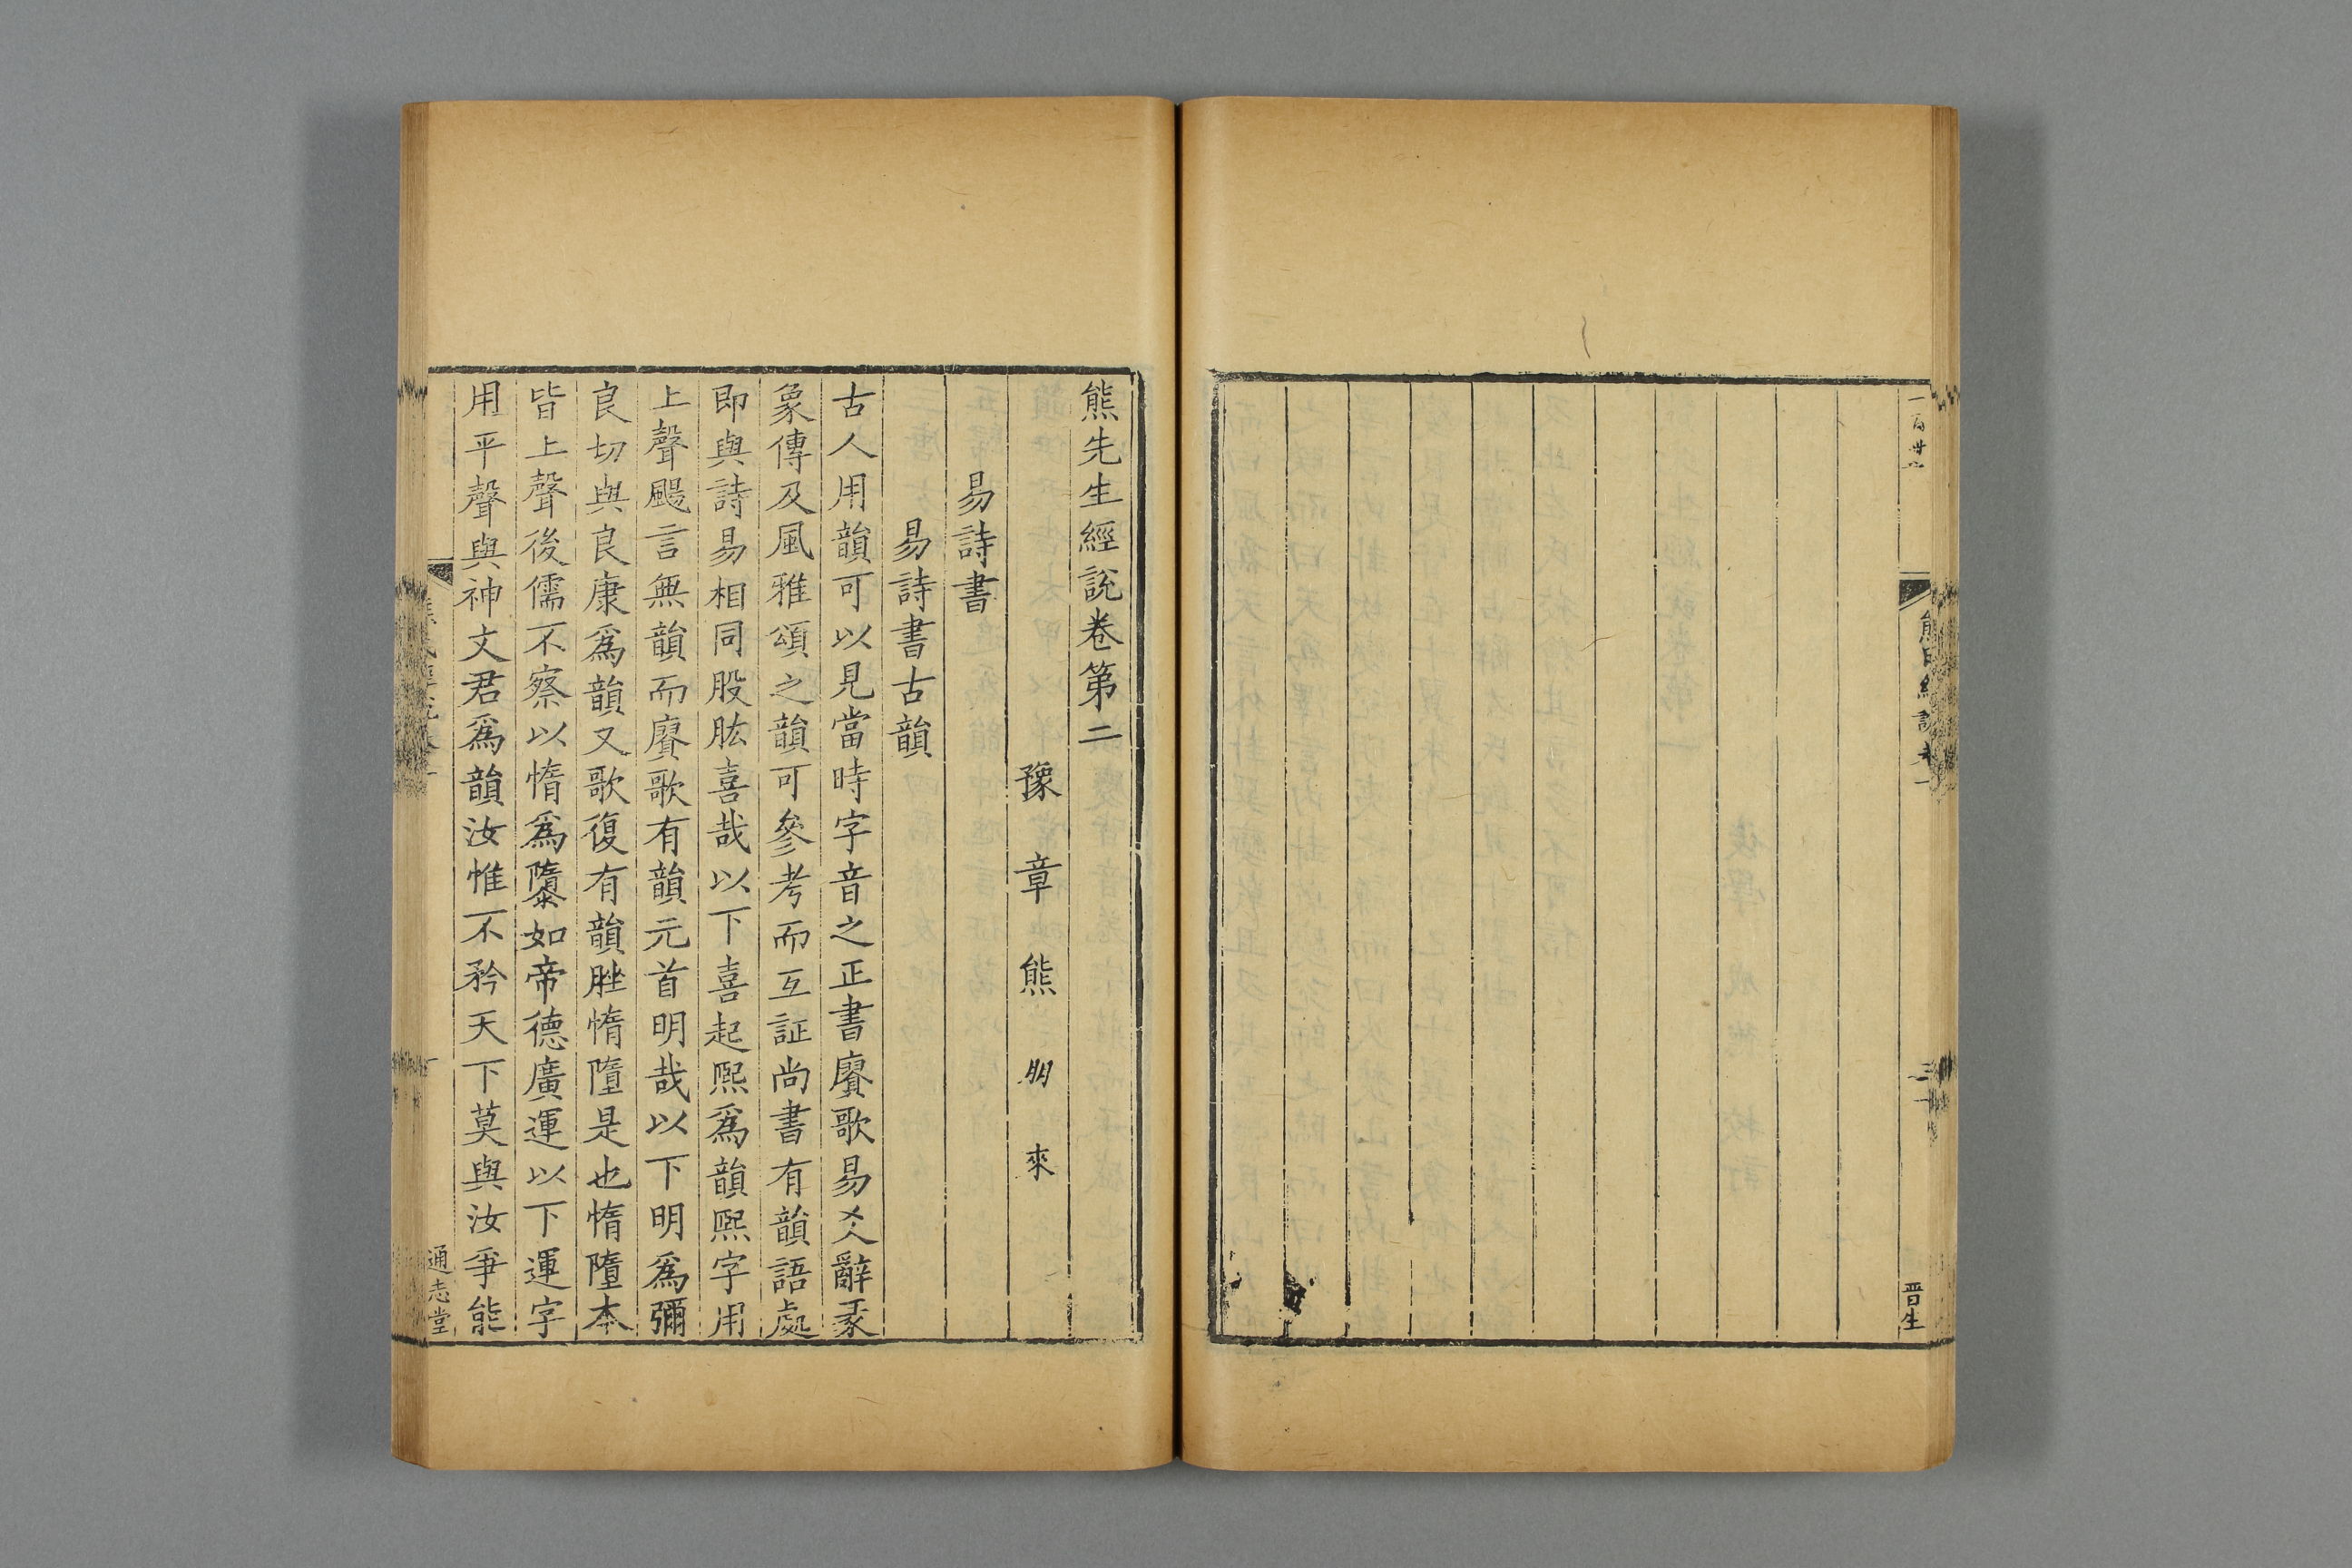 熊先生經說卷第二
豫章熊朋來
易詩書
易詩書古韻
古人用韻可以見當時字音之正書賡歌易爻辭彖
象傳及風雅頌之韻可參考而互証尚書有韻語處
即與詩易相同股肱喜哉以下喜起熙爲韻熙字用
上聲颺言無韻而賡歌有韻元首明哉以下明爲彌
良切與良康爲韻又歌復有韻脞惰墮是也惰墮本
皆上聲後儒不察以惰爲隳如帝德廣運以下運字
用平聲與神文君爲韻汝惟不矜天下莫與汝爭能
通志堂
晉生